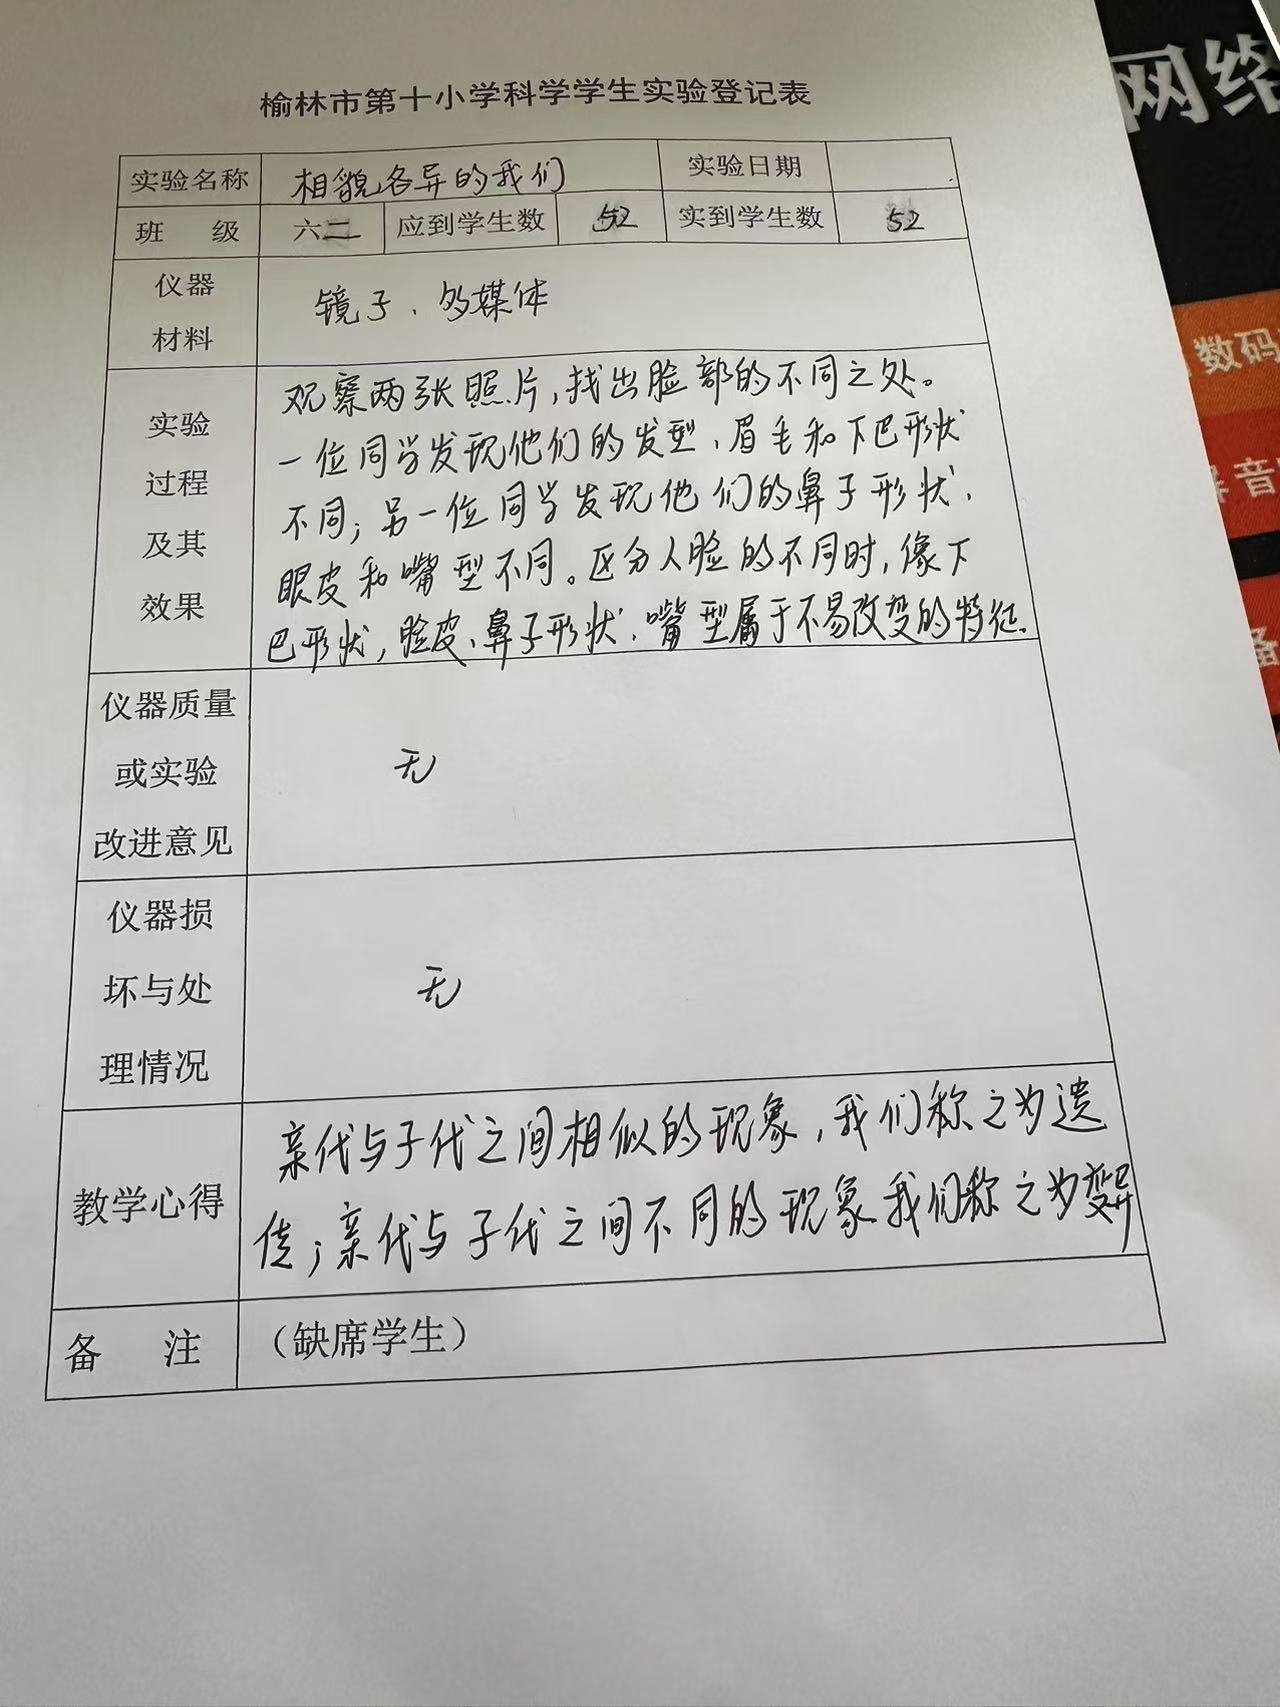 榆林市第十小学科学学生实验登记表
实验名称 相貌各异的我们 实验日期
班 级 六二 应到学生数 52 实到学生数 52
仪器
材料
镜子、多媒体
实验
过程
及其
效果
观察两张照片,找出脸部的不同之处。
一位同学发现他们的发型、眉毛和下巴形状
不同;另一位同学发现他们的鼻子形状、
眼皮和嘴型不同。区分人脸的不同时,像下
巴形状,脸皮、鼻子形状、嘴型属于不易改变的特征.
仪器质量
或实验
改进意见
无
仪器损
坏与处
理情况
无
教学心得
亲代与子代之间相似的现象,我们称之为遗
传;亲代与子代之间不同的现象我们称之为变异
备 注 (缺席学生)
网络
数码
音
备